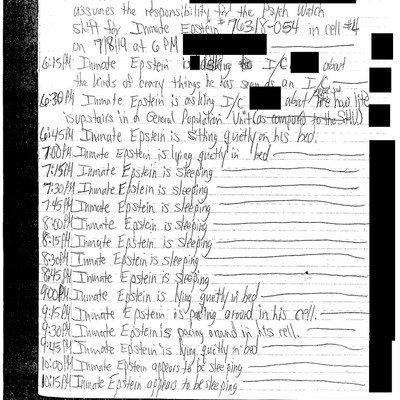 assumes the responsibility for the Psych Watch
shift for Inmate Epstein #76318-054 in cell #4
on 7/8/19 at 6 PM
6:15PM Inmate Epstein is asking I/C about
the kinds of crazy things he has seen as an I/C
6:30PM Inmate Epstein is asking I/C about how life
is upstairs in a General Population Unit (as compared to the SHU)
6:45PM Inmate Epstein is sitting quietly on his bed.
7:00PM Inmate Epstein is lying quietly in bed
7:15PM Inmate Epstein is sleeping
7:30PM Inmate Epstein is sleeping
7:45PM Inmate Epstein is sleeping
8:00PM Inmate Epstein is sleeping
8:15PM Inmate Epstein is sleeping
8:30PM Inmate Epstein is sleeping
8:45PM Inmate Epstein is sleeping
9:00PM Inmate Epstein is lying quietly in bed
9:15PM Inmate Epstein is pacing around in his cell.
9:30PM Inmate Epstein is pacing around in his cell.
9:45PM Inmate Epstein is lying quietly in bed
10:00PM Inmate Epstein appears to be sleeping
10:15PM Inmate Epstein appears to be sleeping